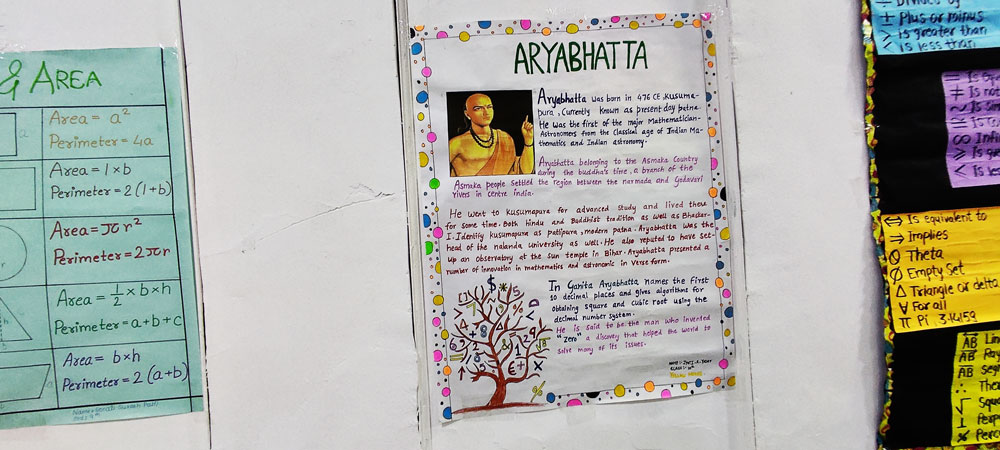 & AREA
Area = a²
Perimeter = 4a
Area = l×b
Perimeter = 2(l+b)
Area = πr²
Perimeter = 2πr
Area = 1/2 × b × h
Perimeter = a+b+c
Area = b×h
Perimeter = 2(a+b)
ARYABHATTA
Aryabhatta was born in 476 CE, Kusuma-
pura, Currently known as present day patna.
He was the first of the major Mathematician-
Astronomers from the classical age of Indian Ma-
thematics and Indian astronomy.
Aryabhatta belonging to the Asmaka Country
during the buddha's time, a branch of the
Asmaka people Settled the region between the narmada and Godavari
rivers in centre india.
He went to Kusumapura for advanced Study and lived there
for some time. Both hindu and Buddhist tradition as well as Bhaskar-
I. Identify kusumapura as patlipura, modern patna. Aryabhatta was the
head of the nalanda university as well. He also reputed to have set-
up an observatory at the Sun temple in Bihar. Aryabhatta presented a
number of innovation in mathematics and astronomic in verse form.
In Ganita Aryabhatta names the first
10 decimal places and gives algorithms for
obtaining square and cubic root using the
decimal number system.
He is said to be the man who invented
"Zero" a discovery that helped the world to
solve many of its issues.
÷ Divided by
± Plus or minus
> is greater than
< is less than
≠ Is not
∞ Infi
⇔ Is equivalent to
⇒ Implies
Theta
∅ Empty Set
Δ Triangle or delta
∀ For all
π Pi, 3.14159
AB Lin
AB Ray
AB Seg
∴ The
√ Squa
⊥ Perp
% Perc